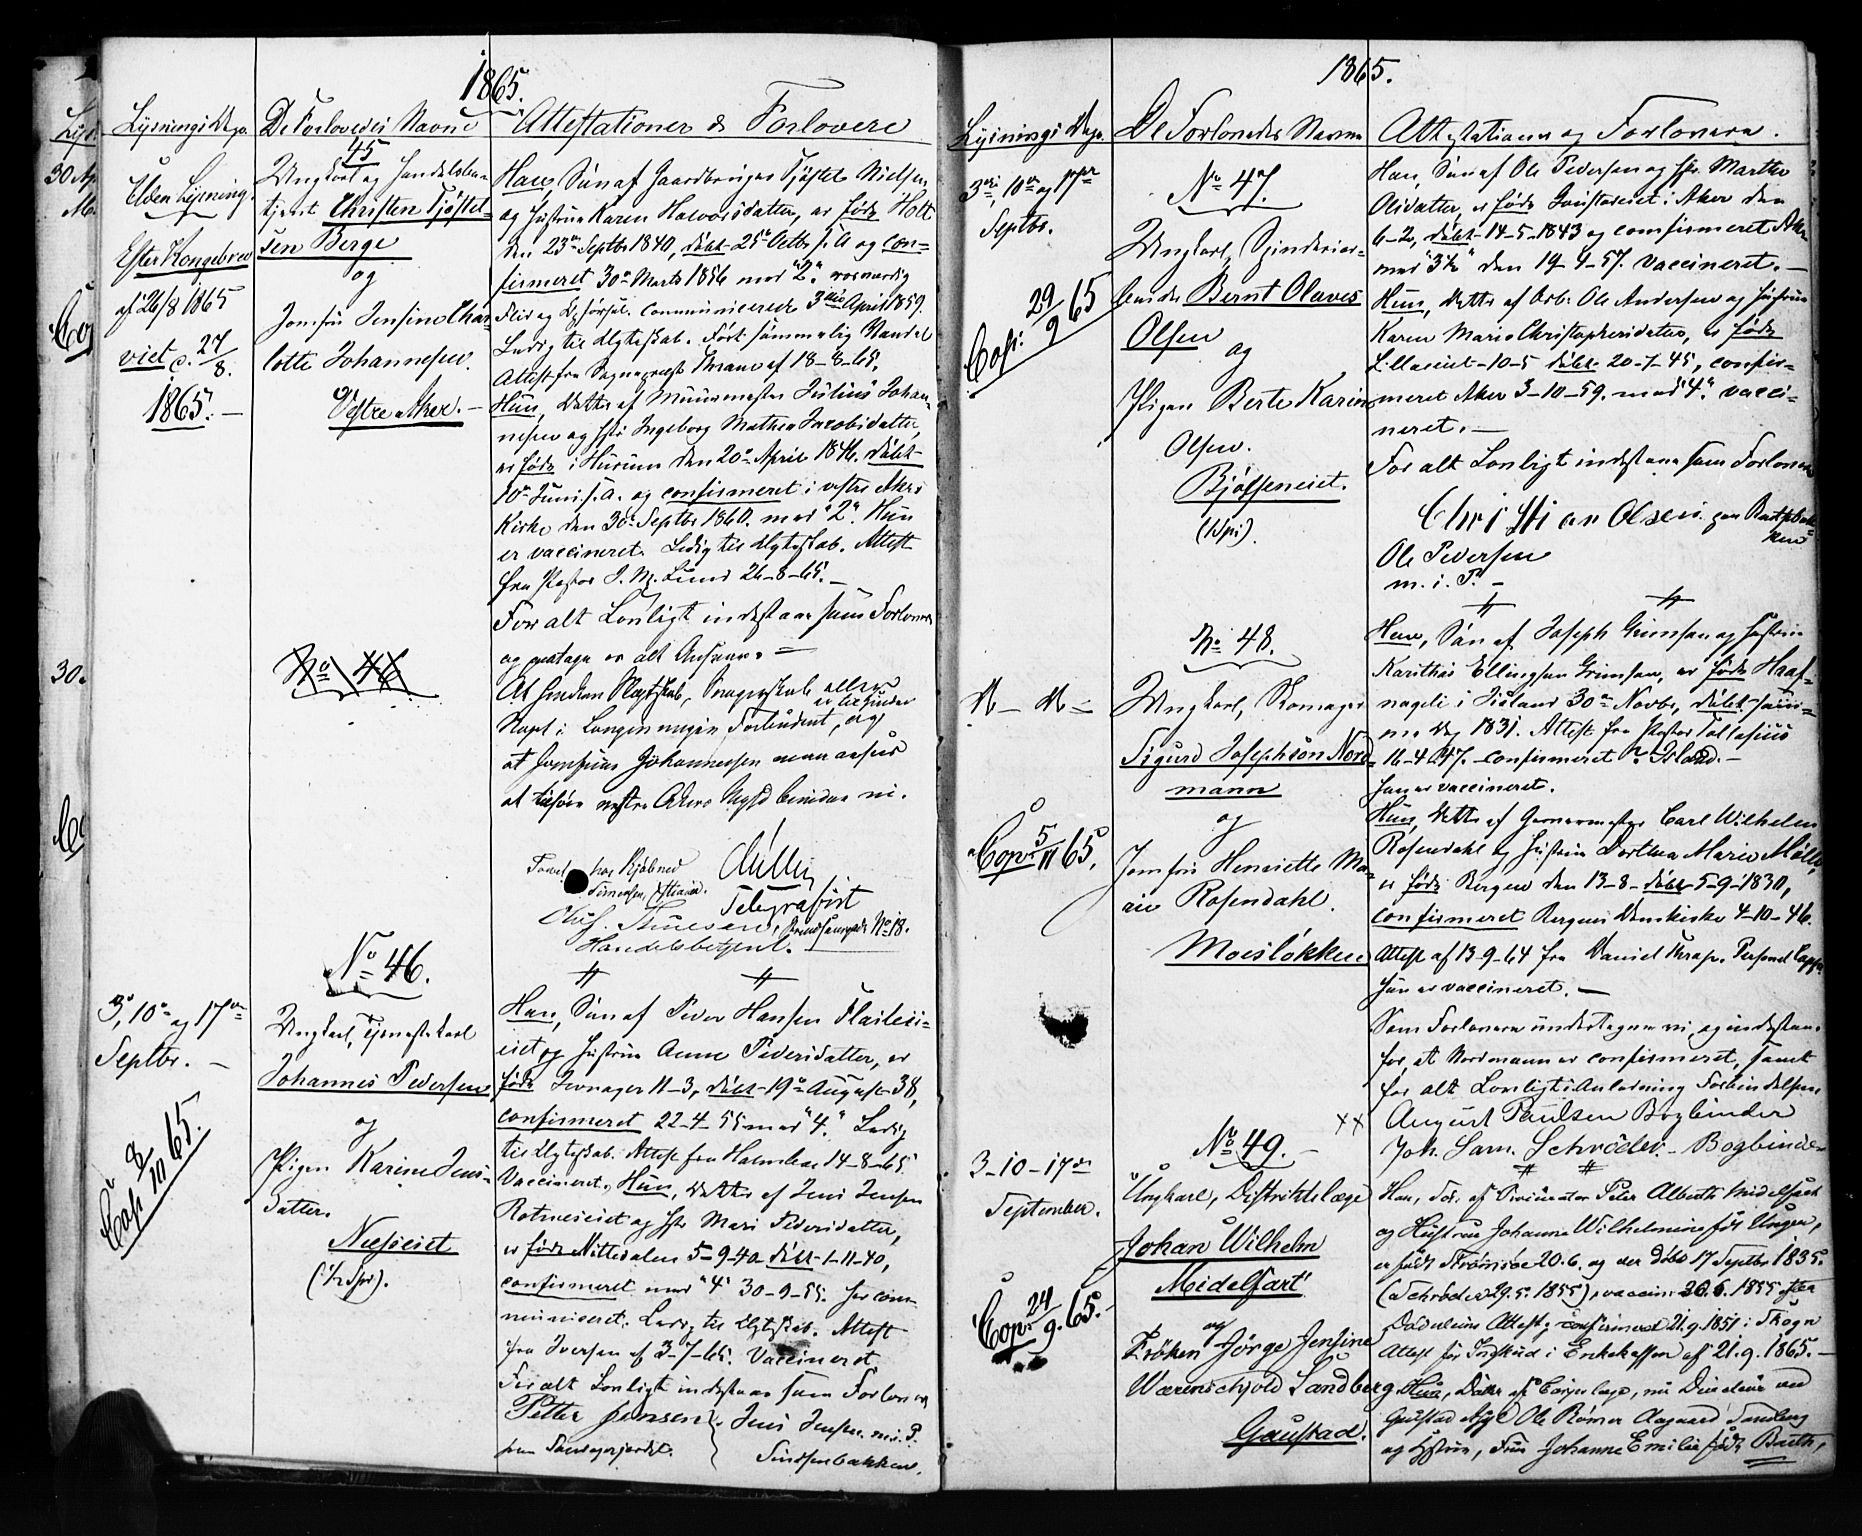 1865.
Lysnings Dage.
De Forlovedes Navne
Attestationer & Forlovere
45
Uden Lysning.
Efter Kongebrev
af 26/8 1865
viet d. 27/8.
1865. —
Ungkarl og Handelsbe-
tjent Christen Tjøstel-
sen Berge
og
Jomfru Jensine Char-
lotte Johannesen.
Vestre Aker. —
Han, Søn af Gaardbruger Tjøstel Nielsen
og Hustru Karen Halvorsdatter, er født Holt
den 23de Septbr 1840, døbt 25de Octbr s. A. og con-
firmeret 30te Marts 1856 med "2". rosværdig
Flid og Opførsel. communicerede 3die April 1859.
Ledig til Ægteskab. Ført sømmelig Vandel
Attest fra Sognepræst af 18-8-65.
Hun, Datter af Muurmester Julius Johan-
nesen og Hstr Ingeborg Mathea Jacobsdatter,
er født i Husum den 20de April 1846. døbt
10de Juni s. a. og confirmeret i vestre Akers
Kirke den 30te Septbr 1860. med "2". Hun
er vaccineret. Ledig til Ægteskab. Attest
fra Pastor J. M. Lund 26-8-65. —
For alt Lovligt indestaar som Forlovere
og paatage os alt Ansvar. —
At hverken Slægtskab, Svogerskab eller
er til Hinder
Noget i Lovgivningen Forbudent, og
at Jomfru Johannessen
at tilhøre vestre Akers Mgd bevidne vi.
Müller
Telegrafist
Handelsbetjent.
No 46.
3die, 10de og 17de
Septbr. —
Cop. 8/10 65.
Ungkarl, Tjenestekarl
Johannes Pedersen
og
Pigen Karine Jens-
datter.
Næseiet
(½ Spr).
Han, Søn af Peder Hansen
eiet og Hustru Anne Pedersdatter, er
født Jevnager 11-3, døbt 19de August 38,
confirmeret 22-4 55 med "4." Ledig
til Ægteskab. Attest fra 14-8-65
Vaccineret. Hun, Datter af Jens Jensen
Rotneseiet og Hstr Mari Pedersdatter,
er født Nittedalen 5-9-40 døbt 1-11-40,
confirmeret med "4" 30-9-55. har com-
municeret. Ledig til Ægteskab. Attest
fra Iversen af 3-7-65. Vaccineret.
For alt Lovligt indestaar som Forlovere
Petter Jensen Jens Jensen m. i. P.
Sinsenbakken.
1865.
Lysnings Dage.
De Forlovedes Navne
Attestationer og Forlovere.
3die, 10de og 17de
Septbr.
Cop: 29/9 65
No 47.
Ungkarl, Spinderiar-
beider Bernt Olaves
Olsen
og
Pigen Berte Karine
Olsen.
Bjølseneiet.
(½ Spr).
Han, Søn af Ole Pedersen og Hstr Marthe
Olsdatter, er født i Aker den
6-2, døbt 14-5-1843 og comfirmeret Aker
med "3½" den 19-4-57. Vaccineret. —
Hun, Datter af Arb. Ole Andersen og Hustru
Karen Marie Christophersdatter, er født
Lilleeiet 10-5 døbt 20-7-45, confir-
meret Aker 3-10-59. med "4". vacci-
neret. —
For alt Lovligt indestaar som Forlovere
Christian Olsen
Ole Pedersen
m. i. P. —
No 48.
Cop. 5/11 65.
Ungkarl, Skomager
Sigurd Josephson Nord-
mann
og
Jomfru Henriette Ma-
rie Rosendahl.
Moesløkken
Han, Søn af Joseph Grimsen og Hustru
Karithas Ellingsen Grimsen, er født Haaf-
nageli i Island 30te Novbr, døbt sam-
me Dag 1831. Attest fra Pastor
16-4-47. confirmeret i Island. —
han er vaccineret.
Hun, Datter af Garvermester Carl Wilhelm
Rosendahl og Hustru Dorthea Marie Møller,
er født Bergen den 13-8- døbt 5-9-1830,
confirmeret Bergens Domkirke 4-10-46.
Attest af 13-9-64 fra Daniel Thrap. Personel Capp.
hun er vaccineret. —
Som Forlovere undertegne vi og indestaar
for, at Nordmann er confirmeret, samt
for alt Lovligt i Anledning Forbindelsen
August Paulsen Bogbinder
Joh. Sam. Schrøder. — Bogbinder
No 49. —
3-10-17de
September.
Cop. 24/9. 65. —
Ungkarl, Distriktslæge
Johan Wilhelm
Midelfart
og
Frøken Jørge Jensine
Wærenschjold Sandberg
Gaustad.
Han, Søn af Procurator Peter Albeth Midelfart
og Hustru Johanne Wilhelmine født Unger,
er født Strømsøe 20.6. og der døbt 17 Septbr 1835.
(Schrøder 29.5. 1855), vaccin 26.6. 1855 efter
Attest; confirmeret 21.9.1851 i Skogn
Attest for Indskud i Enkekassen af 21.9.1865. —
Hun, Datter af Corpslæge, nu Directeur ved
Gaustad Asyl Ole Rømer Aagaard Sandberg
og Hustru, Fru Johanne Emilie født Barth,